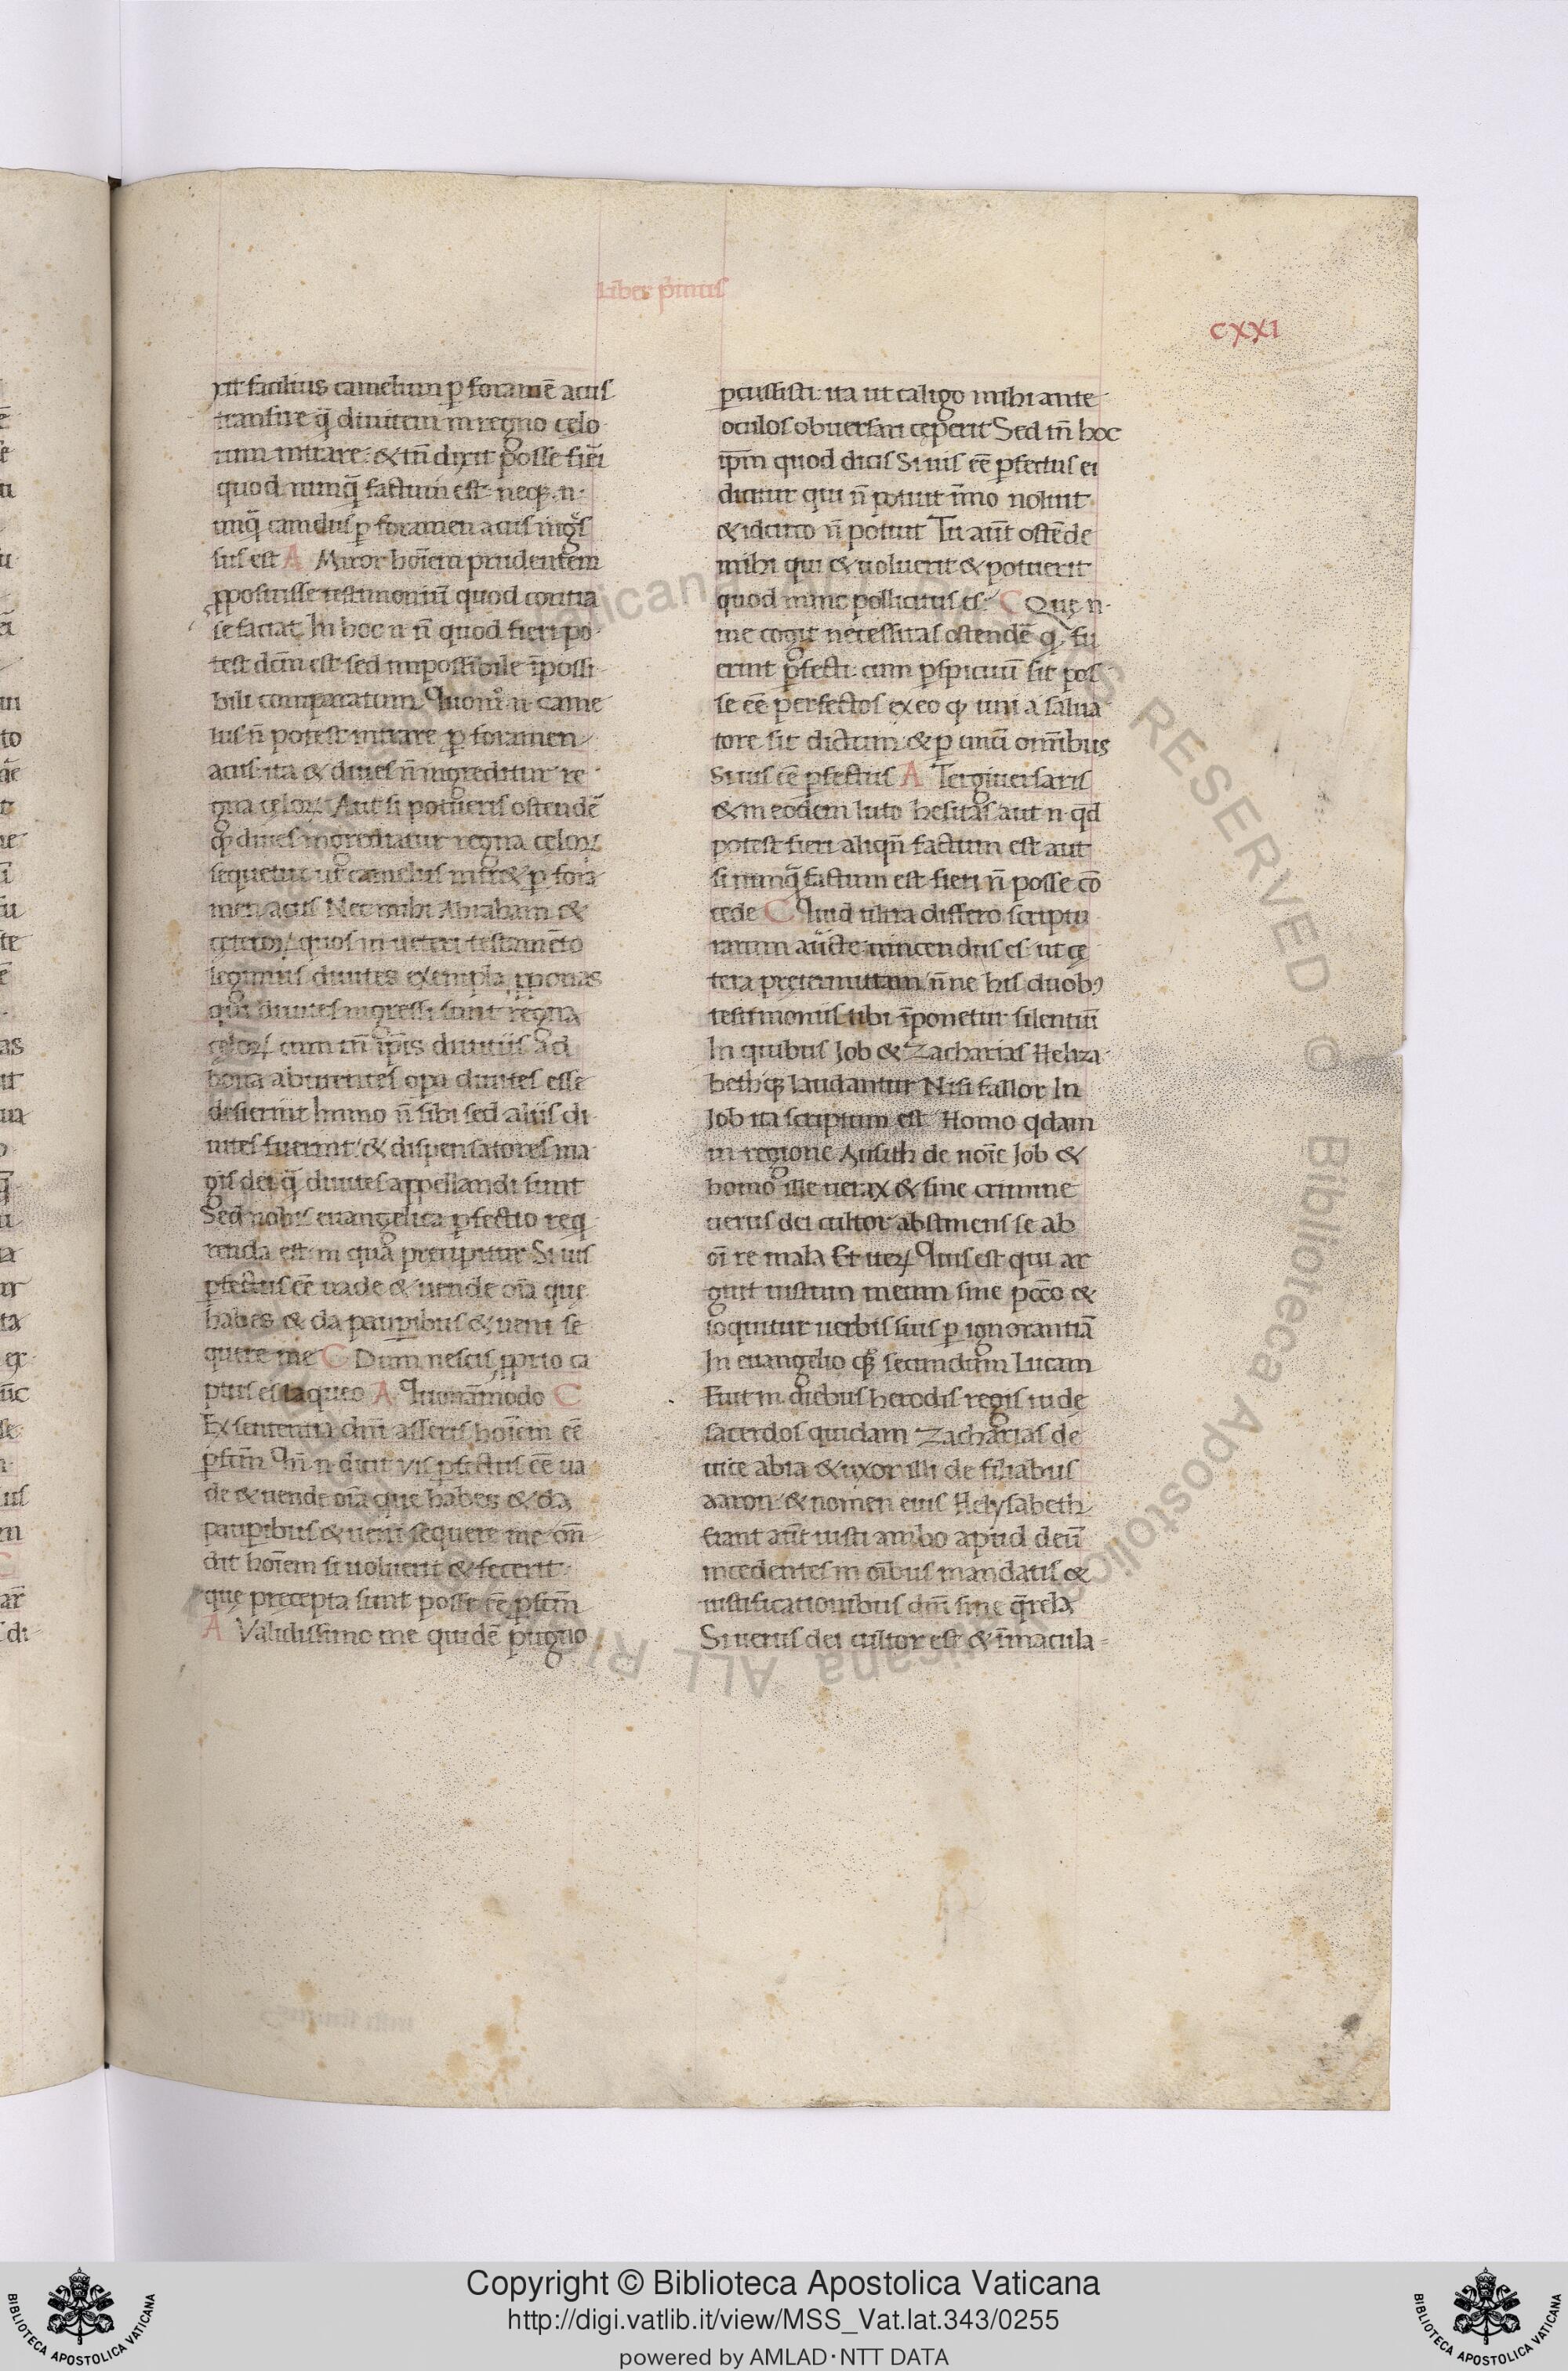 Liber p̄imus
CXXI
xit facilius camelum ꝑ foramē acus
transire q̄ diuitem in regno cęlo
rum intrare: & tn̄ dixit posse fieri
quod nunq̄ factum est neq; n·
unq̄ camelus ꝑ foramen acus ings̄
sus est A Miror hoīem prudentem
ꝓposuisse testimoniū quod contra
se faciat In hoc n n̄ quod fieri po
test dcm̄ est sed impossibile īpossi
bili comparatum Quom̊ n came
lus n̄ potest intrare ꝑ foramen
acus ita & diues n̄ ingreditur re
gna cęloꝝ Aut si potueris ostendē
ꝙ diues ingrediatur regna cęloꝝ
sequetur ut camelus intret ꝑ fora
men acus Nec mihi Abraham &
cęteroꝝ quos in ueteri testamēto
legimus diuites exempla ꝓponas
qui diuites ingressi sunt regna
cęloꝝ cum tn̄ ip̄is diuitiis ad
bona abutentes opa diuites esse
desierint Immo n̄ sibi sed aliis di
uites fuerint & dispensatores ma
gis dei q̄ diuites appellandi sunt
Sed nobis euangelica ꝑfectio req
renda est in qua precipitur Si uis
ꝑfectus eē uade & uende oīa quę
habes & da pauꝑibus & ueni se
quere me C Dum nescis ꝓprio ca
ptus es laqueo A Quonāmodo C
Ex sententia dnī asseris hoīem eē
ꝑfcm̄ Qn̄ n dicit vis ꝑfectus eē ua
de & uende oīa que habes & da
pauꝑibus & ueni sequere me on̄
dit hoīem si uoluerit & fecerit
quę precepta sunt posse eē ꝑfcm̄
A Validissimo me quidē pugno
ꝑcussisti: ita ut caligo mihi ante
oculos obuersari cęperit Sed tn̄ hoc
ip̄m quod dicis Si uis eē ꝑfectus ei
dicitur qui n̄ potuit īmo noluit
& idcirco n̄ potuit Tu aut̄ ostēde
mihi qui & uoluerit & potuerit
quod nunc pollicitus es: C Quę n·
me cogit necessitas ostendē ꝗ fu
erint ꝑfecti: cum ꝑspicuū sit pos
se eē perfectos ex eo ꝙ uni a salua
tore sit dictum & ꝑ unū omnibus
Si uis eē ꝑfectus A Tergiuersaris
& in eodem luto hesitas aut n qd
potest fieri aliqn̄ factum est aut
si nunq̄ factum est fieri n̄ posse cō
cede C Quid ultra differo scriptu
rarum au̅cte uincendus es ut cę
tera pretermittam n̄ne his duobꝰ
testimoniis tibi īponetur silentiū
In quibus Job & Zacharias Heliza
bethq; laudantur Nisi fallor In
Job ita scriptum est Homo qdam
in regione Ausith de noīe Job &
homo ille uerax & sine crimine
uerus dei cultor abstinens se ab
oī re mala Et ueꝝ Quis est qui ar
guit iustum meum sine pcc̄o &
loquitur uerbis suis ꝑ ignorantiā
In euangelio q; secundum Lucam
Fuit in diebus herodis regis iudę
sacerdos quidam Zacharias de
uice abia & uxor illi de filiabus
aaron: & nomen eius Helysabeth
Erant aut̄ iusti ambo apud deū
incedentes in oībus mandatis &
iustificationibus dnī sine q̄rela
Si uerus dei cultor est & īmacula
Copyright © Biblioteca Apostolica Vaticana
http://digi.vatlib.it/view/MSS_Vat.lat.343/0255
powered by AMLAD·NTT DATA